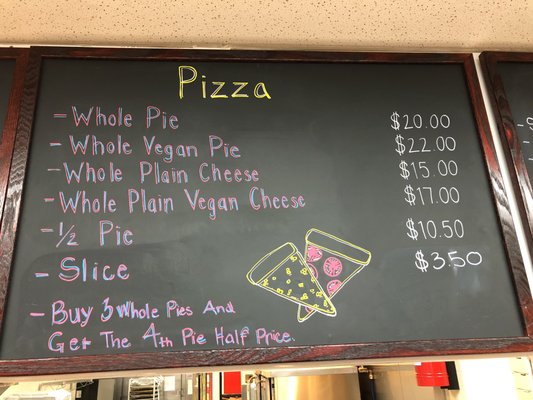 Pizza
- Whole Pie $20.00
- Whole Vegan Pie $22.00
- Whole Plain Cheese $15.00
- Whole Plain Vegan Cheese $17.00
- ½ Pie $10.50
- Slice $3.50
- Buy 3 Whole Pies And
Get The 4th Pie Half Price.